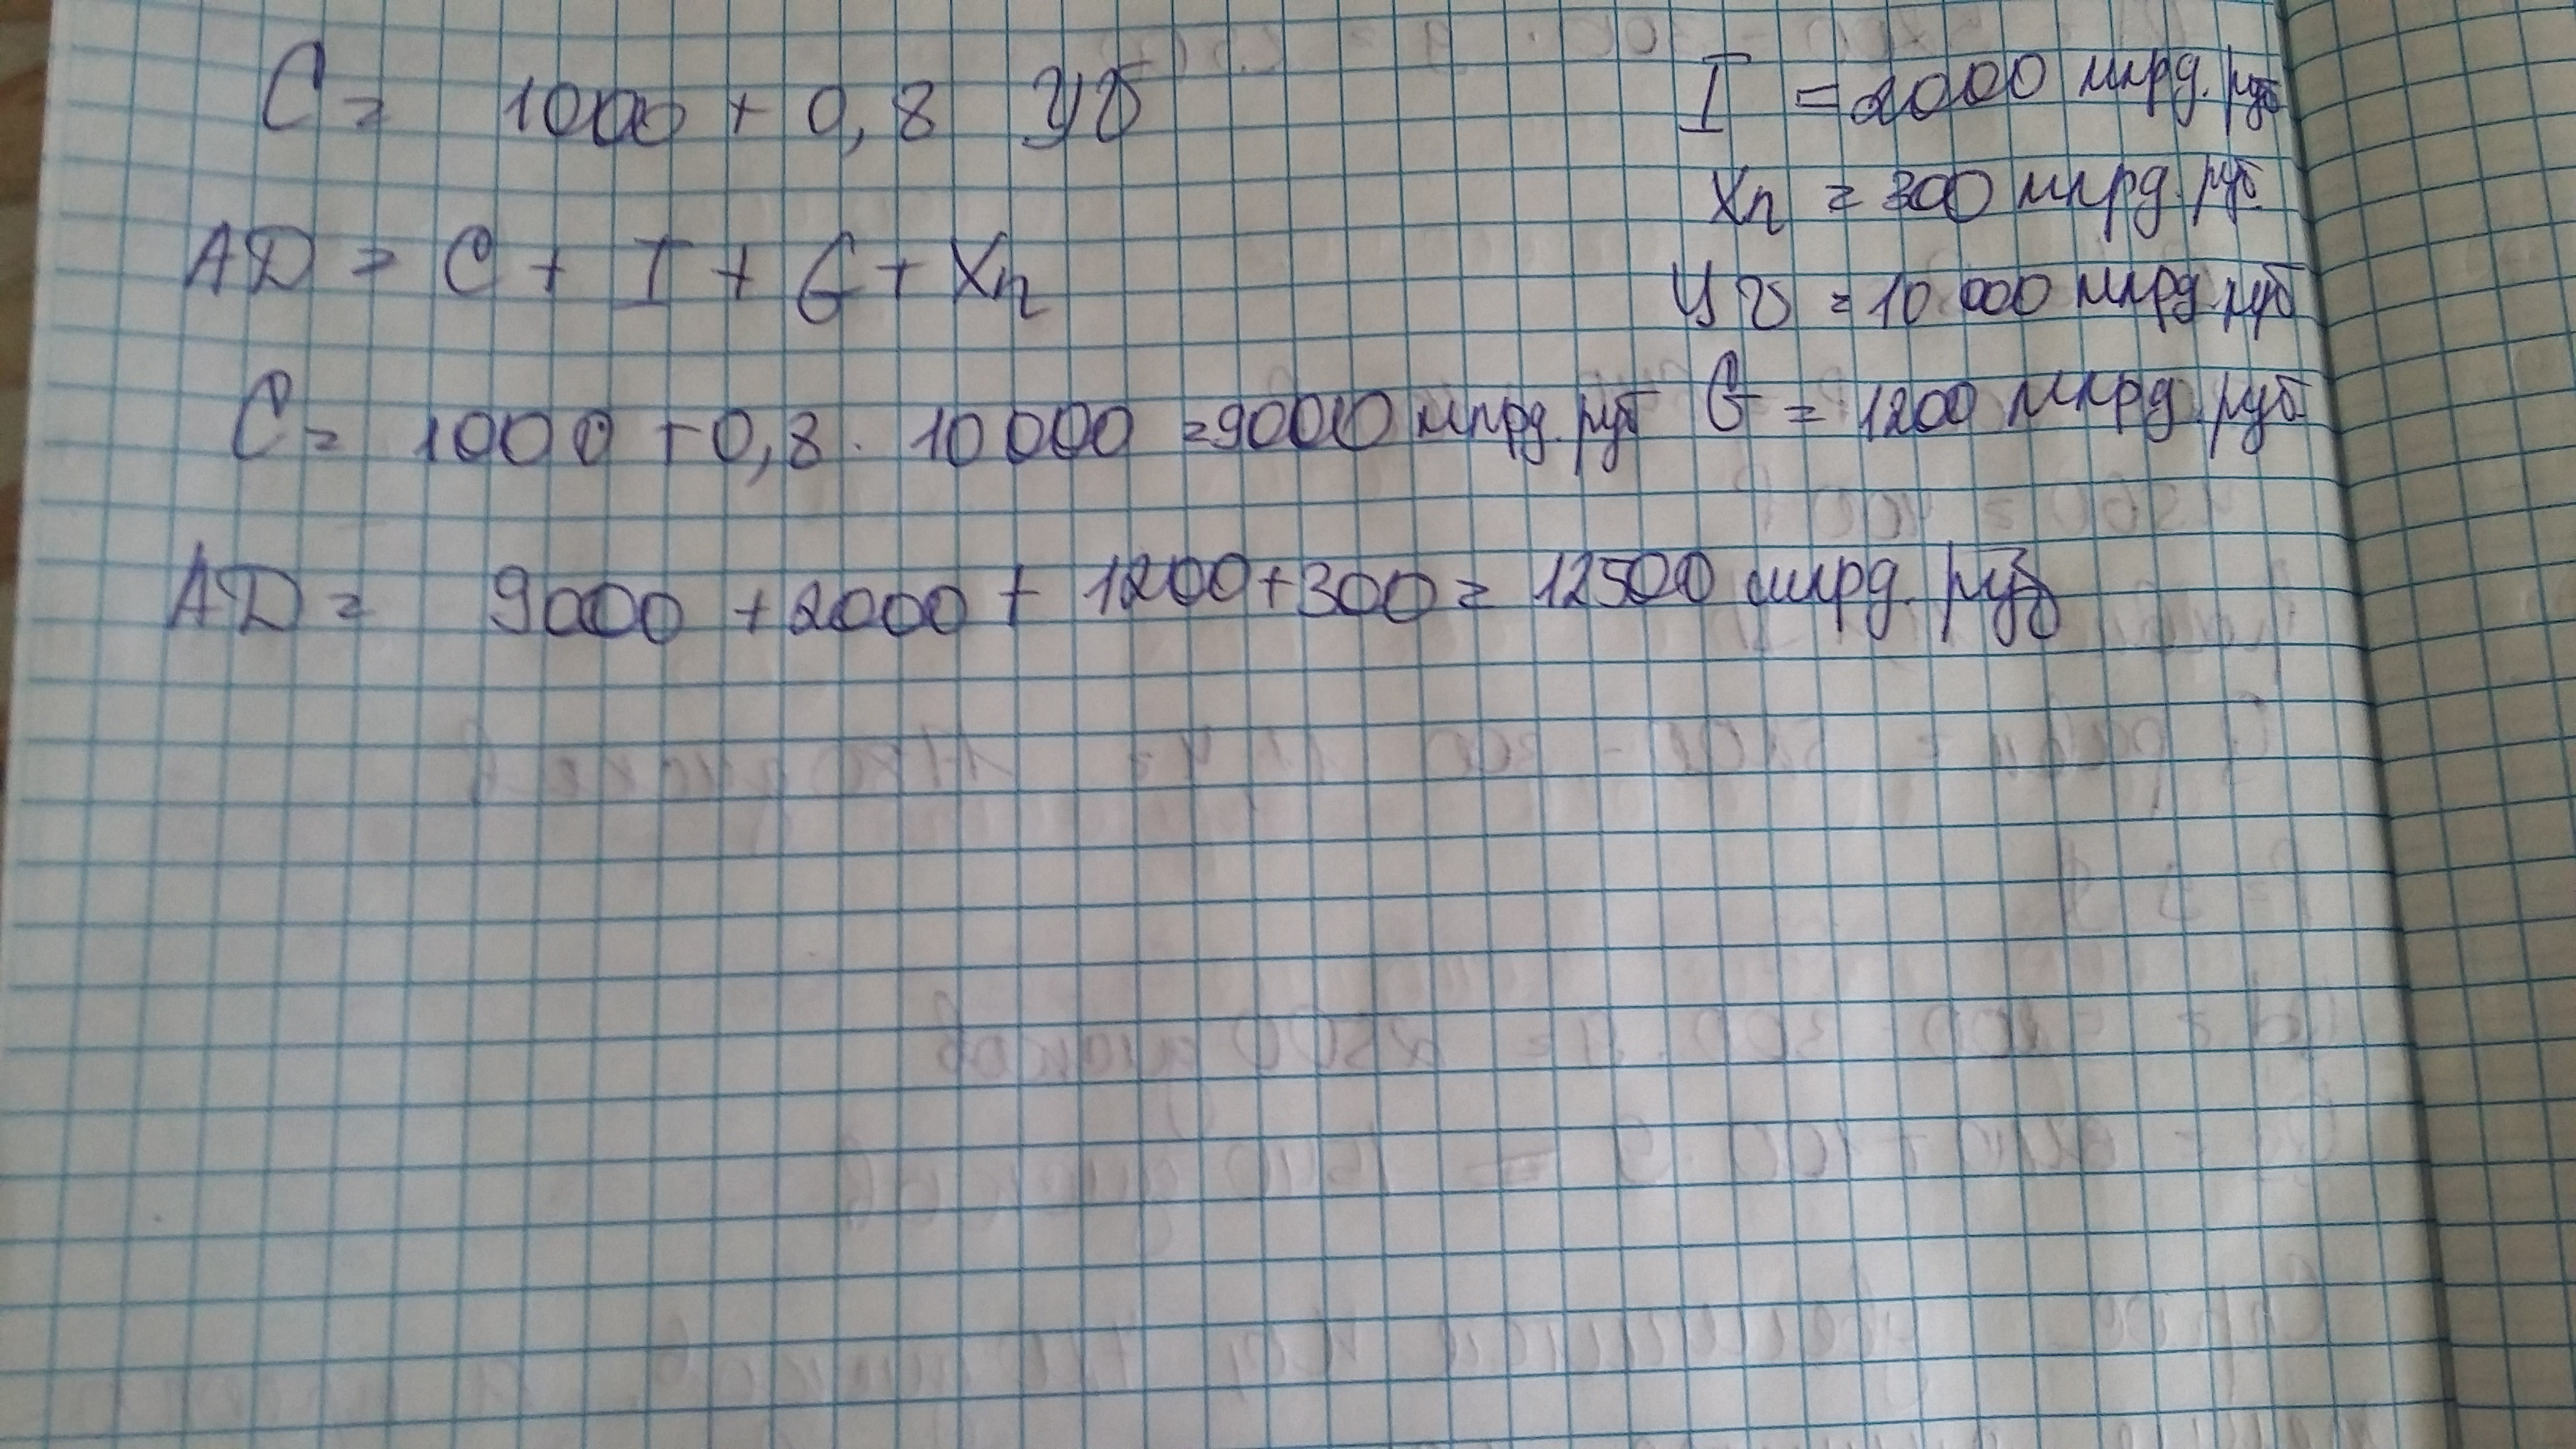 C = 1000 + 0,8 Уv
AD = C + I + G + Xn
C = 1000 + 0,8 · 10 000 = 9000 млрд. руб
AD = 9000 + 2000 + 1200 + 300 = 12500 млрд. руб
I = 2000 млрд. руб
Xn = 300 млрд. руб.
Уv = 10 000 млрд. руб
G = 1200 млрд. руб.